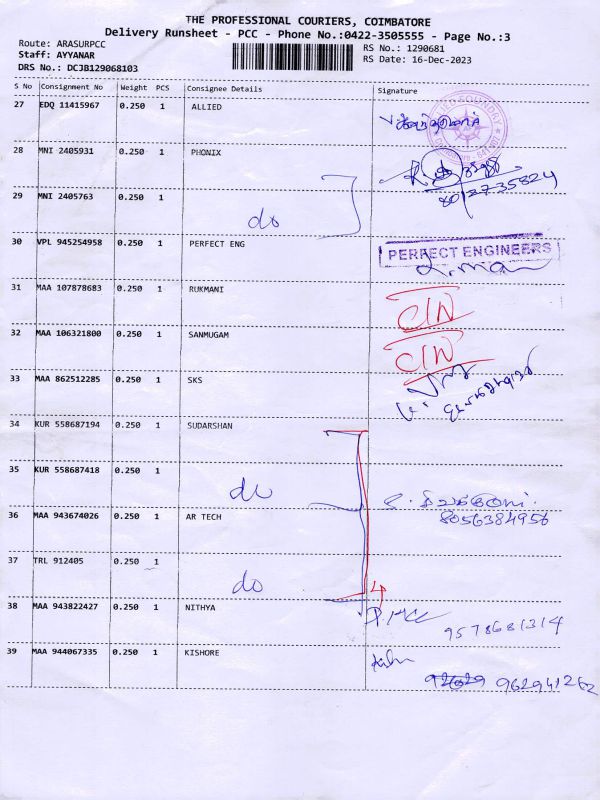 THE PROFESSIONAL COURIERS, COIMBATORE
Delivery Runsheet - PCC - Phone No.:0422-3505555 - Page No.:3
Route: ARASURPCC RS No.: 1290681
Staff: AYYANAR RS Date: 16-Dec-2023
DRS No.: DCJB129068103
S No Consignment No Weight PCS Consignee Details Signature
27 EDQ 11415967 0.250 1 ALLIED
28 MNI 2405931 0.250 1 PHONIX
8012735824
29 MNI 2405763 0.250 1
do
30 VPL 945254958 0.250 1 PERFECT ENG PERFECT ENGINEERS
31 MAA 107878683 0.250 1 RUKMANI
32 MAA 106321800 0.250 1 SANMUGAM
33 MAA 862512285 0.250 1 SKS
34 KUR 558687194 0.250 1 SUDARSHAN
35 KUR 558687418 0.250 1
do
36 MAA 943674026 0.250 1 AR TECH 8056384956
37 TRL 912405 0.250 1
do 4
38 MAA 943822427 0.250 1 NITHYA
9578681314
39 MAA 944067335 0.250 1 KISHORE
962941262